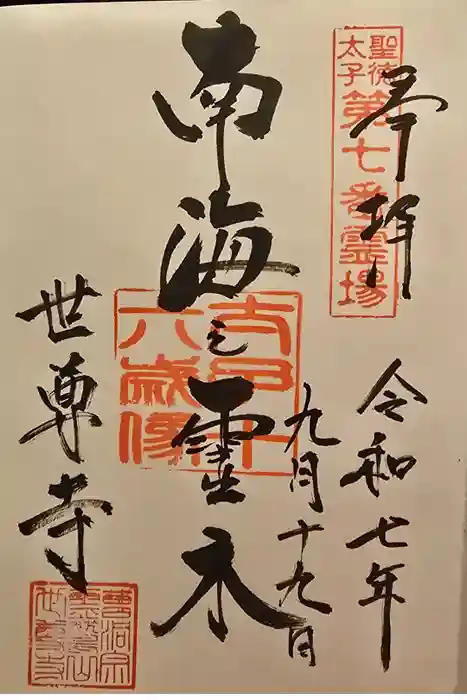 奉拝
聖徳
太子
第七番霊場
令和七年
九月十九日
南海之靈木
太子十
六歳像
世尊寺
曹洞宗
霊鷲山
世尊寺